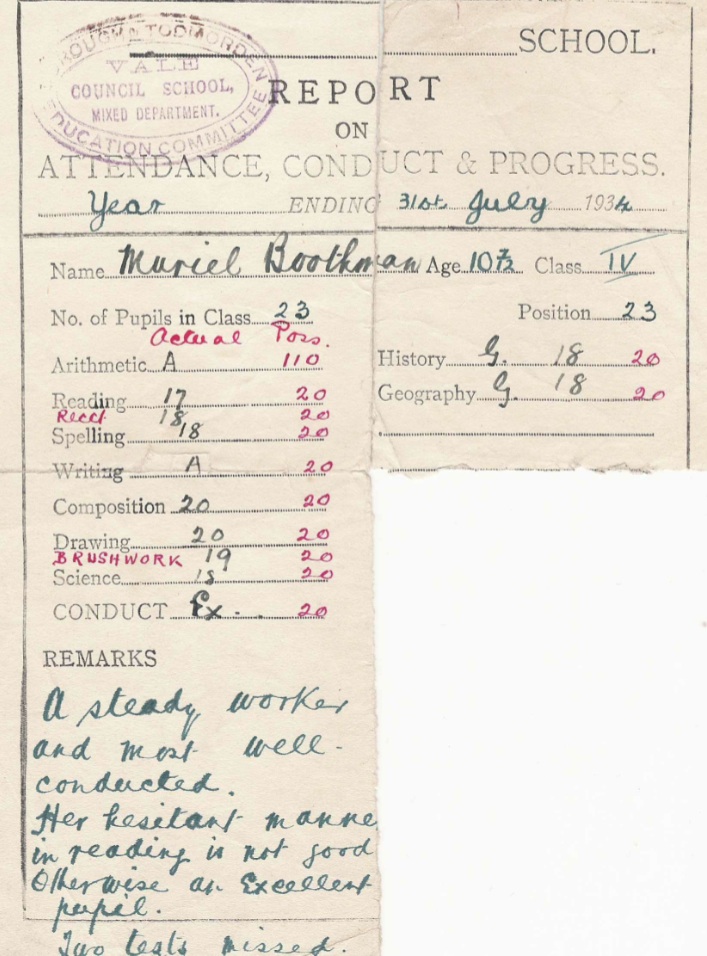 BOROUGH OF TODMORDEN
VALE
COUNCIL SCHOOL,
MIXED DEPARTMENT.
EDUCATION COMMITTEE
SCHOOL.
REPORT
ON
ATTENDANCE, CONDUCT & PROGRESS.
Year ENDING 31st July 1934
Name Muriel Boothman Age 10 7/12 Class IV
No. of Pupils in Class 23 Position 23
Actual Poss.
Arithmetic A 110 History G. 18 20
Reading 17 20 Geography G. 18 20
Rect 18 20
Spelling 18 20
Writing A 20
Composition 20 20
Drawing 20 20
BRUSHWORK 19 20
Science 18 20
CONDUCT Ex. 20
REMARKS
A steady worker
and most well-
conducted.
Her hesitant manne
in reading is not good
Otherwise an Excellent
pupil.
Two tests missed.